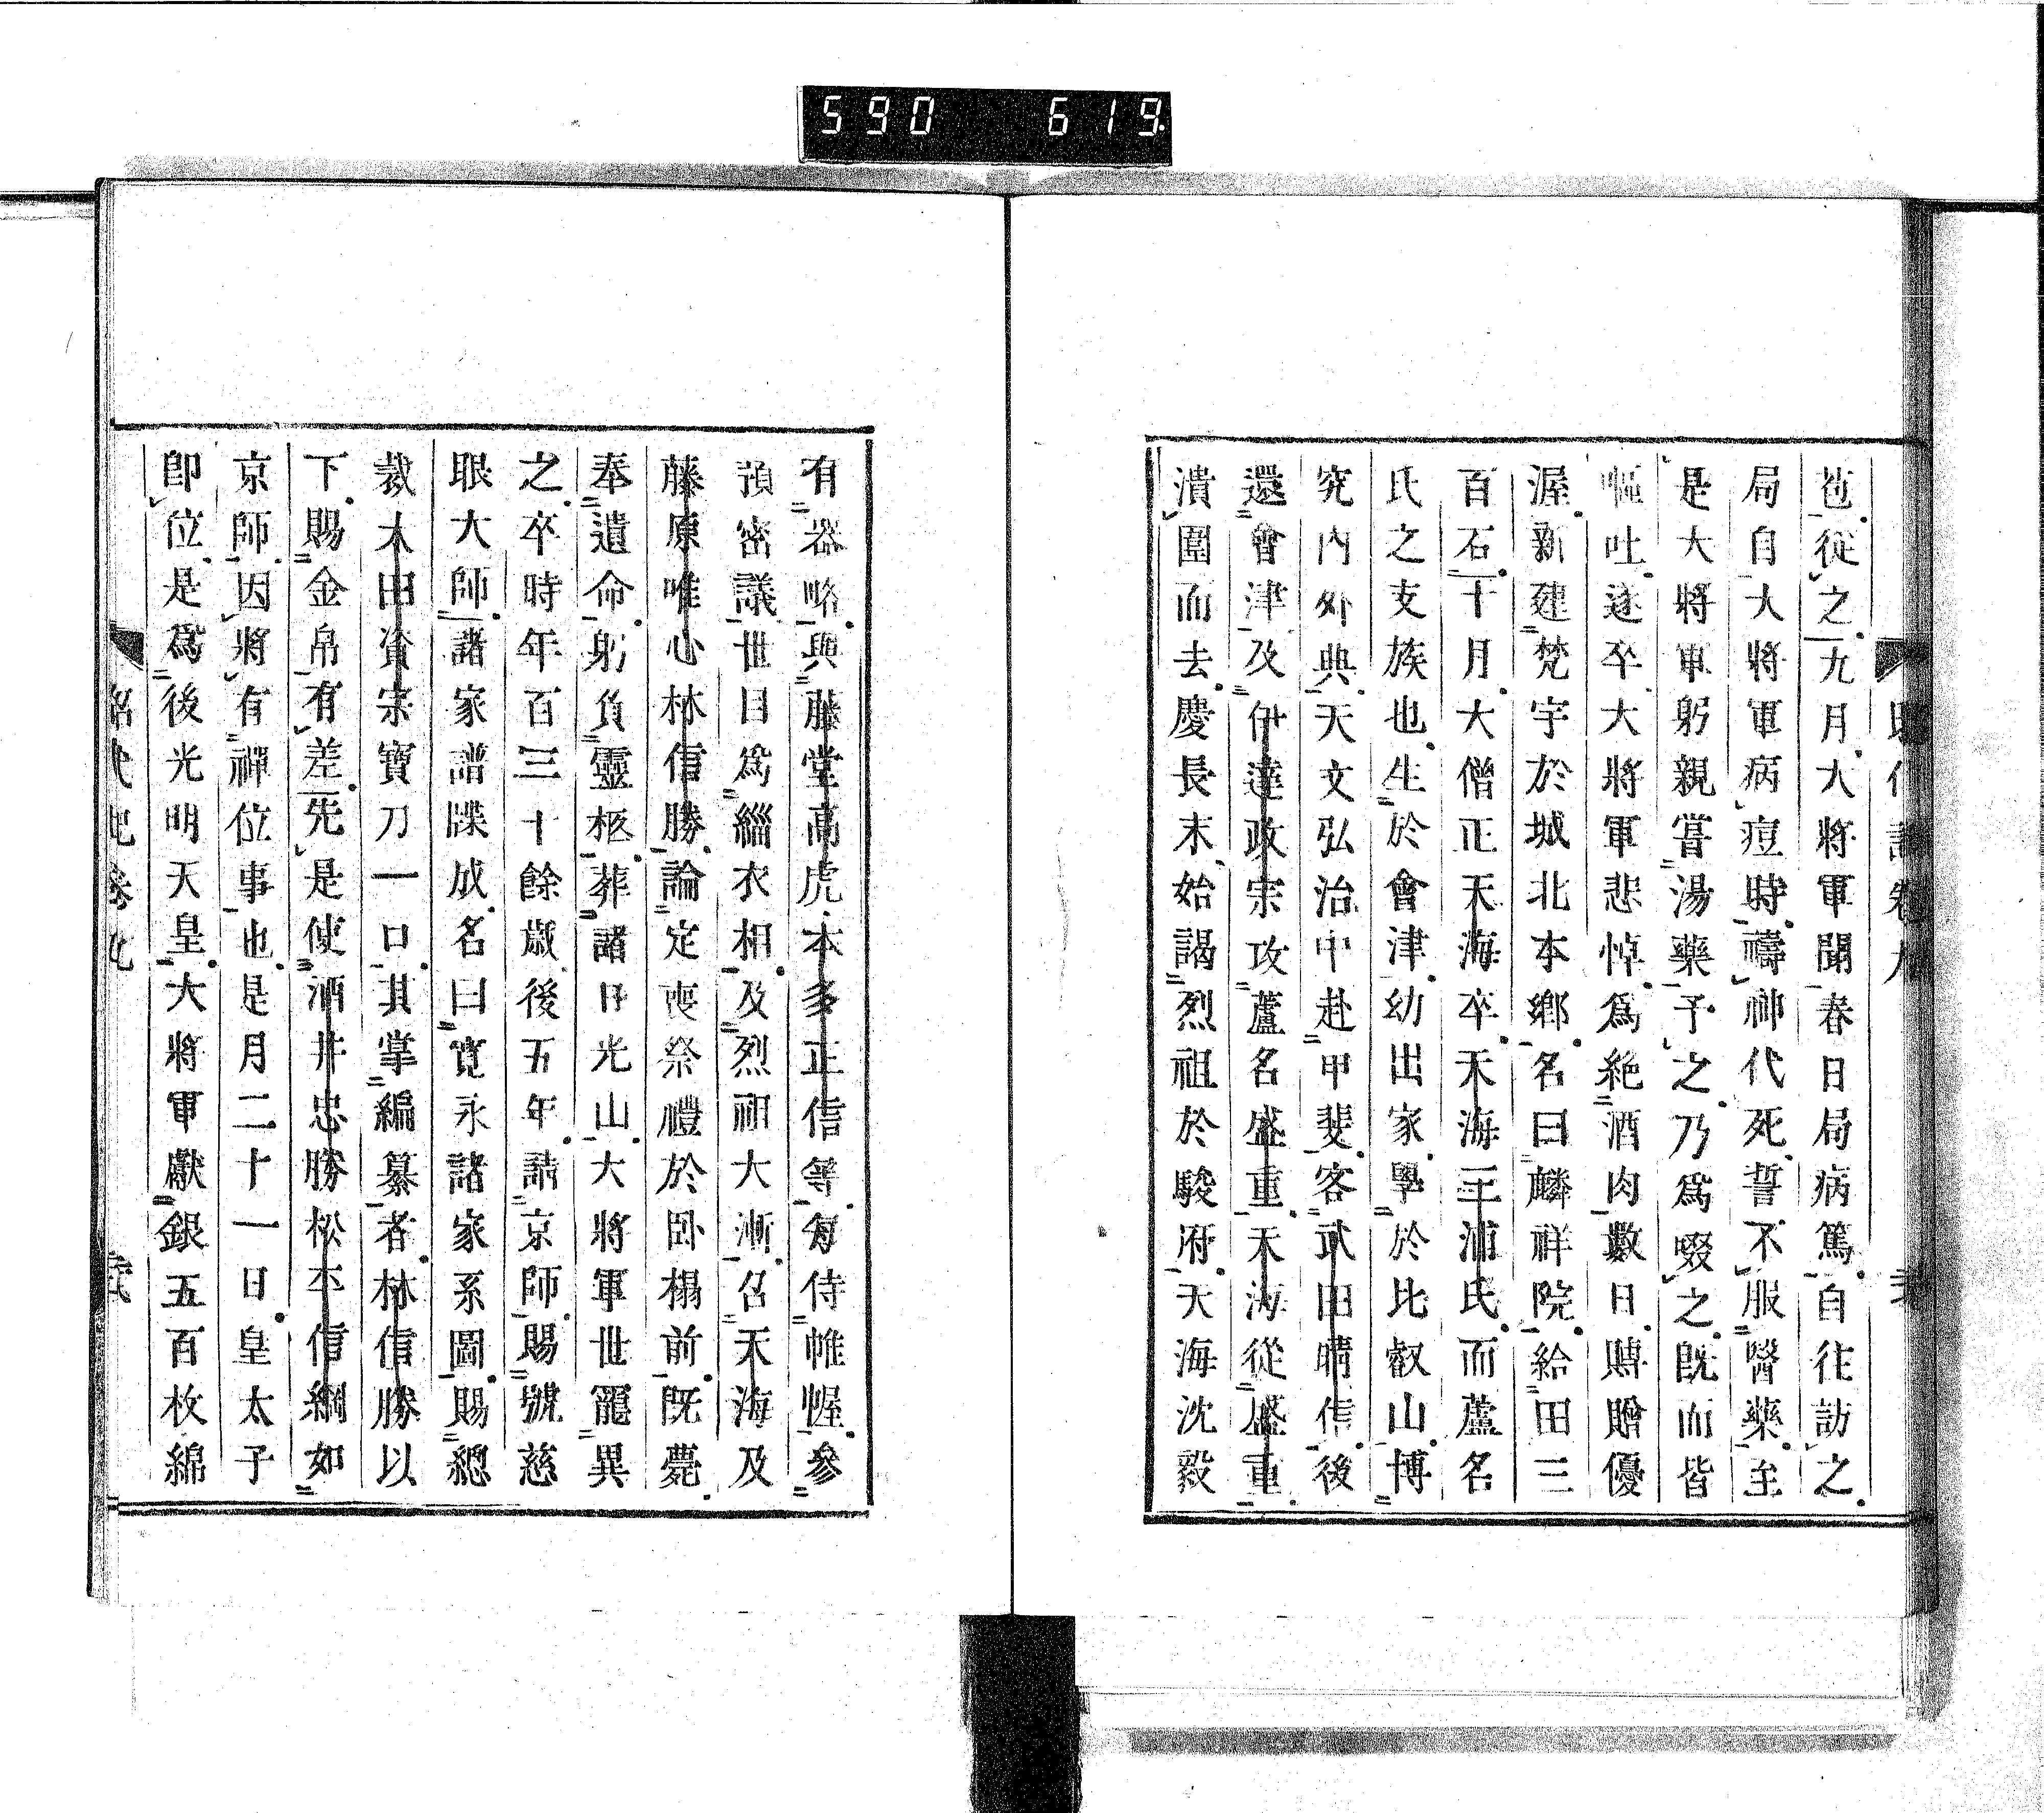 590 619.
苞從之九月大將軍聞春日局病篤自往訪之
局自大將軍病痘時禱神代死誓不服醫藥至
是大將軍躬親嘗湯藥予之乃爲啜之既而皆
嘔吐遂卒大將軍悲悼爲絶酒肉數日賻贈優
渥新建梵宇於城北本鄉名曰麟祥院給田三
百石十月大僧正天海卒天海三浦氏而蘆名
氏之支族也生於會津幼出家學於比叡山博
究内外典天文弘治中赴甲斐客武田晴信後
還會津及伊達政宗攻蘆名盛重天海從盛重
潰圍而去慶長末始謁烈祖於駿府天海沈毅
有器略與藤堂高虎本多正信等每侍帷幄參
預密議世目爲緇衣相及烈祖大漸召天海及
藤原唯心林信勝論定喪祭禮於臥榻前既薨
奉遺命躬負靈柩葬諸日光山大將軍世寵異
之卒時年百三十餘歲後五年請京師賜號慈
眼大師諸家譜牒成名曰寬永諸家系圖賜總
裁太田資宗寶刀一口其掌編纂者林信勝以
下賜金帛有差先是使酒井忠勝松平信綱如
京師因將有禪位事也是月二十一日皇太子
卽位是爲後光明天皇大將軍獻銀五百枚綿